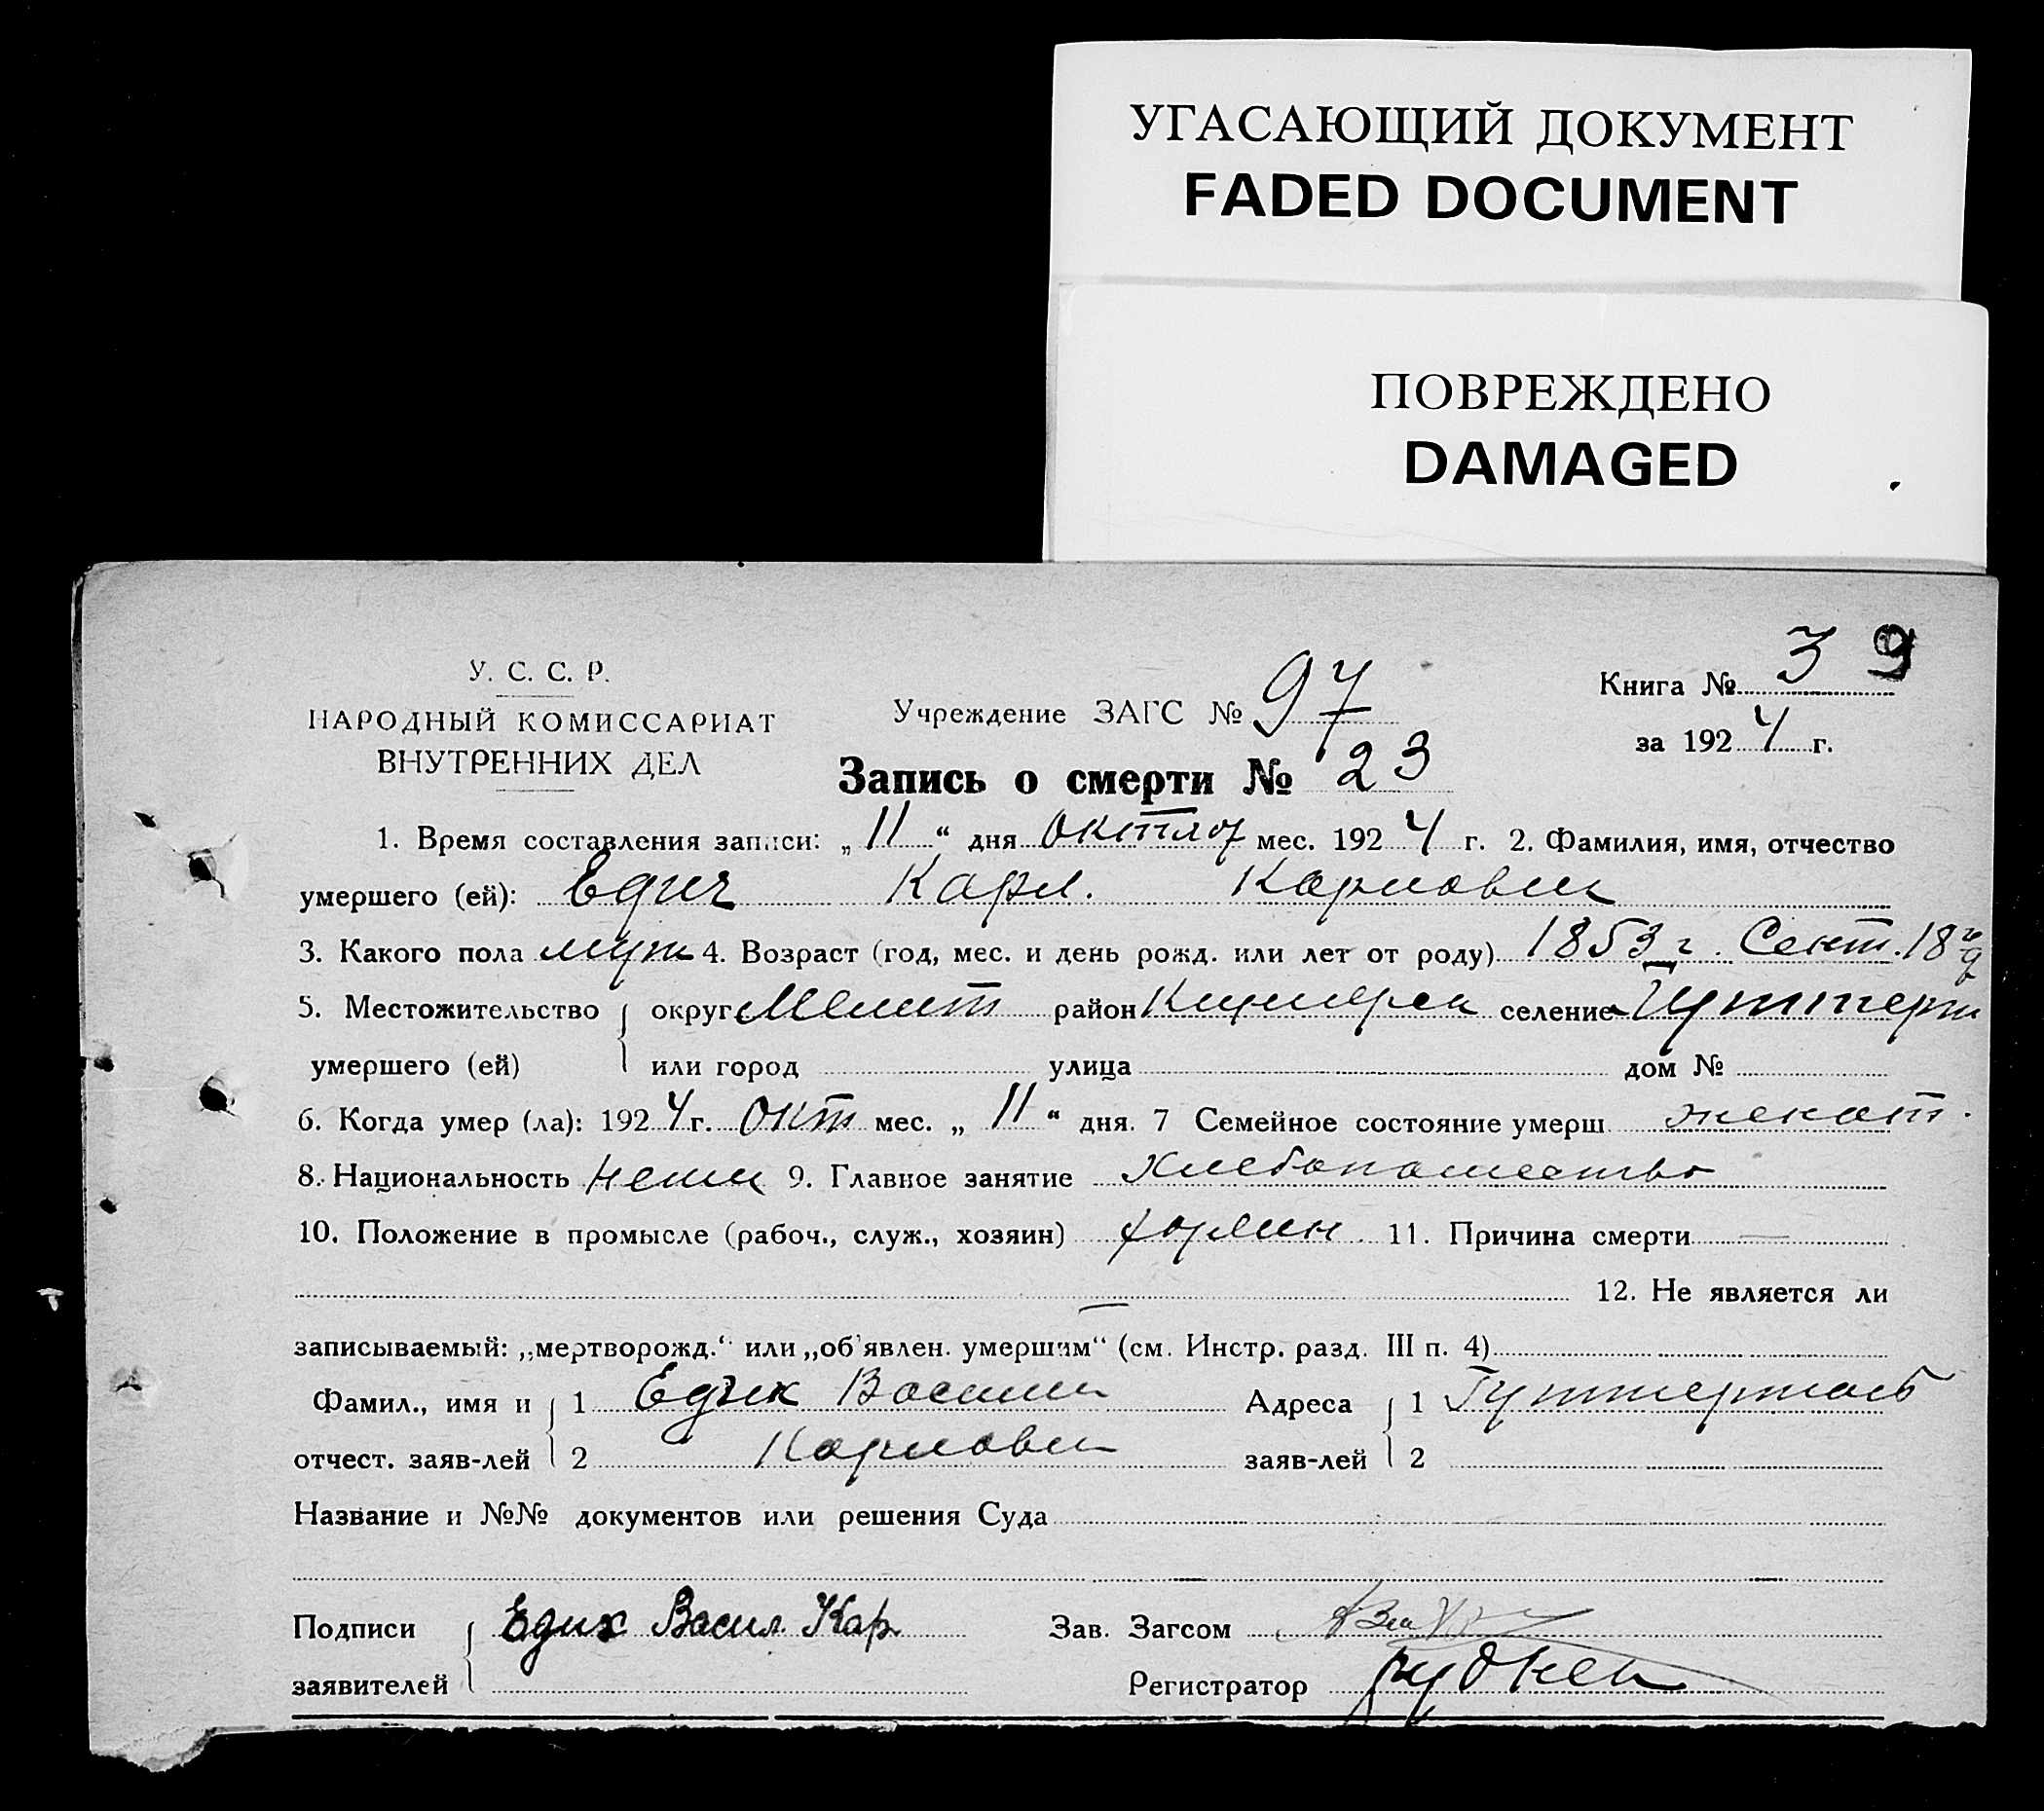 УГАСАЮЩИЙ ДОКУМЕНТ
FADED DOCUMENT
ПОВРЕЖДЕНО
DAMAGED
У. С. С. Р.
НАРОДНЫЙ КОМИССАРИАТ
ВНУТРЕННИХ ДЕЛ
Учреждение ЗАГС № 97
Книга № 3 9
за 1924 г.
Запись о смерти № 23
1. Время составления записи: „11“ дня мес. 1924 г. 2. Фамилия, имя, отчество
умершего (ей): Едих Карл. Карлович
3. Какого пола муж 4. Возраст (год, мес. и день рожд. или лет от роду) 1853 г. Сент. 18
5. Местожительство округ Мелит район селение
умершего (ей) или город улица дом №
6. Когда умер (ла): 1924 г. Окт мес. „11“ дня. 7 Семейное состояние умерш женат.
8. Национальность немец 9. Главное занятие хлебопашество
10. Положение в промысле (рабоч., служ., хозяин) хозяин 11. Причина смерти —
12. Не является ли
записываемый: „мертворожд.“ или „об'явлен. умершим“ (см. Инстр. разд. III п. 4)
Фамил., имя и 1 Едих Василий Адреса 1 Гуттерталь
отчест. заяв-лей 2 Карлович заяв-лей 2
Название и №№ документов или решения Суда
Подписи Едих Васил. Кар. Зав. Загсом
заявителей Регистратор